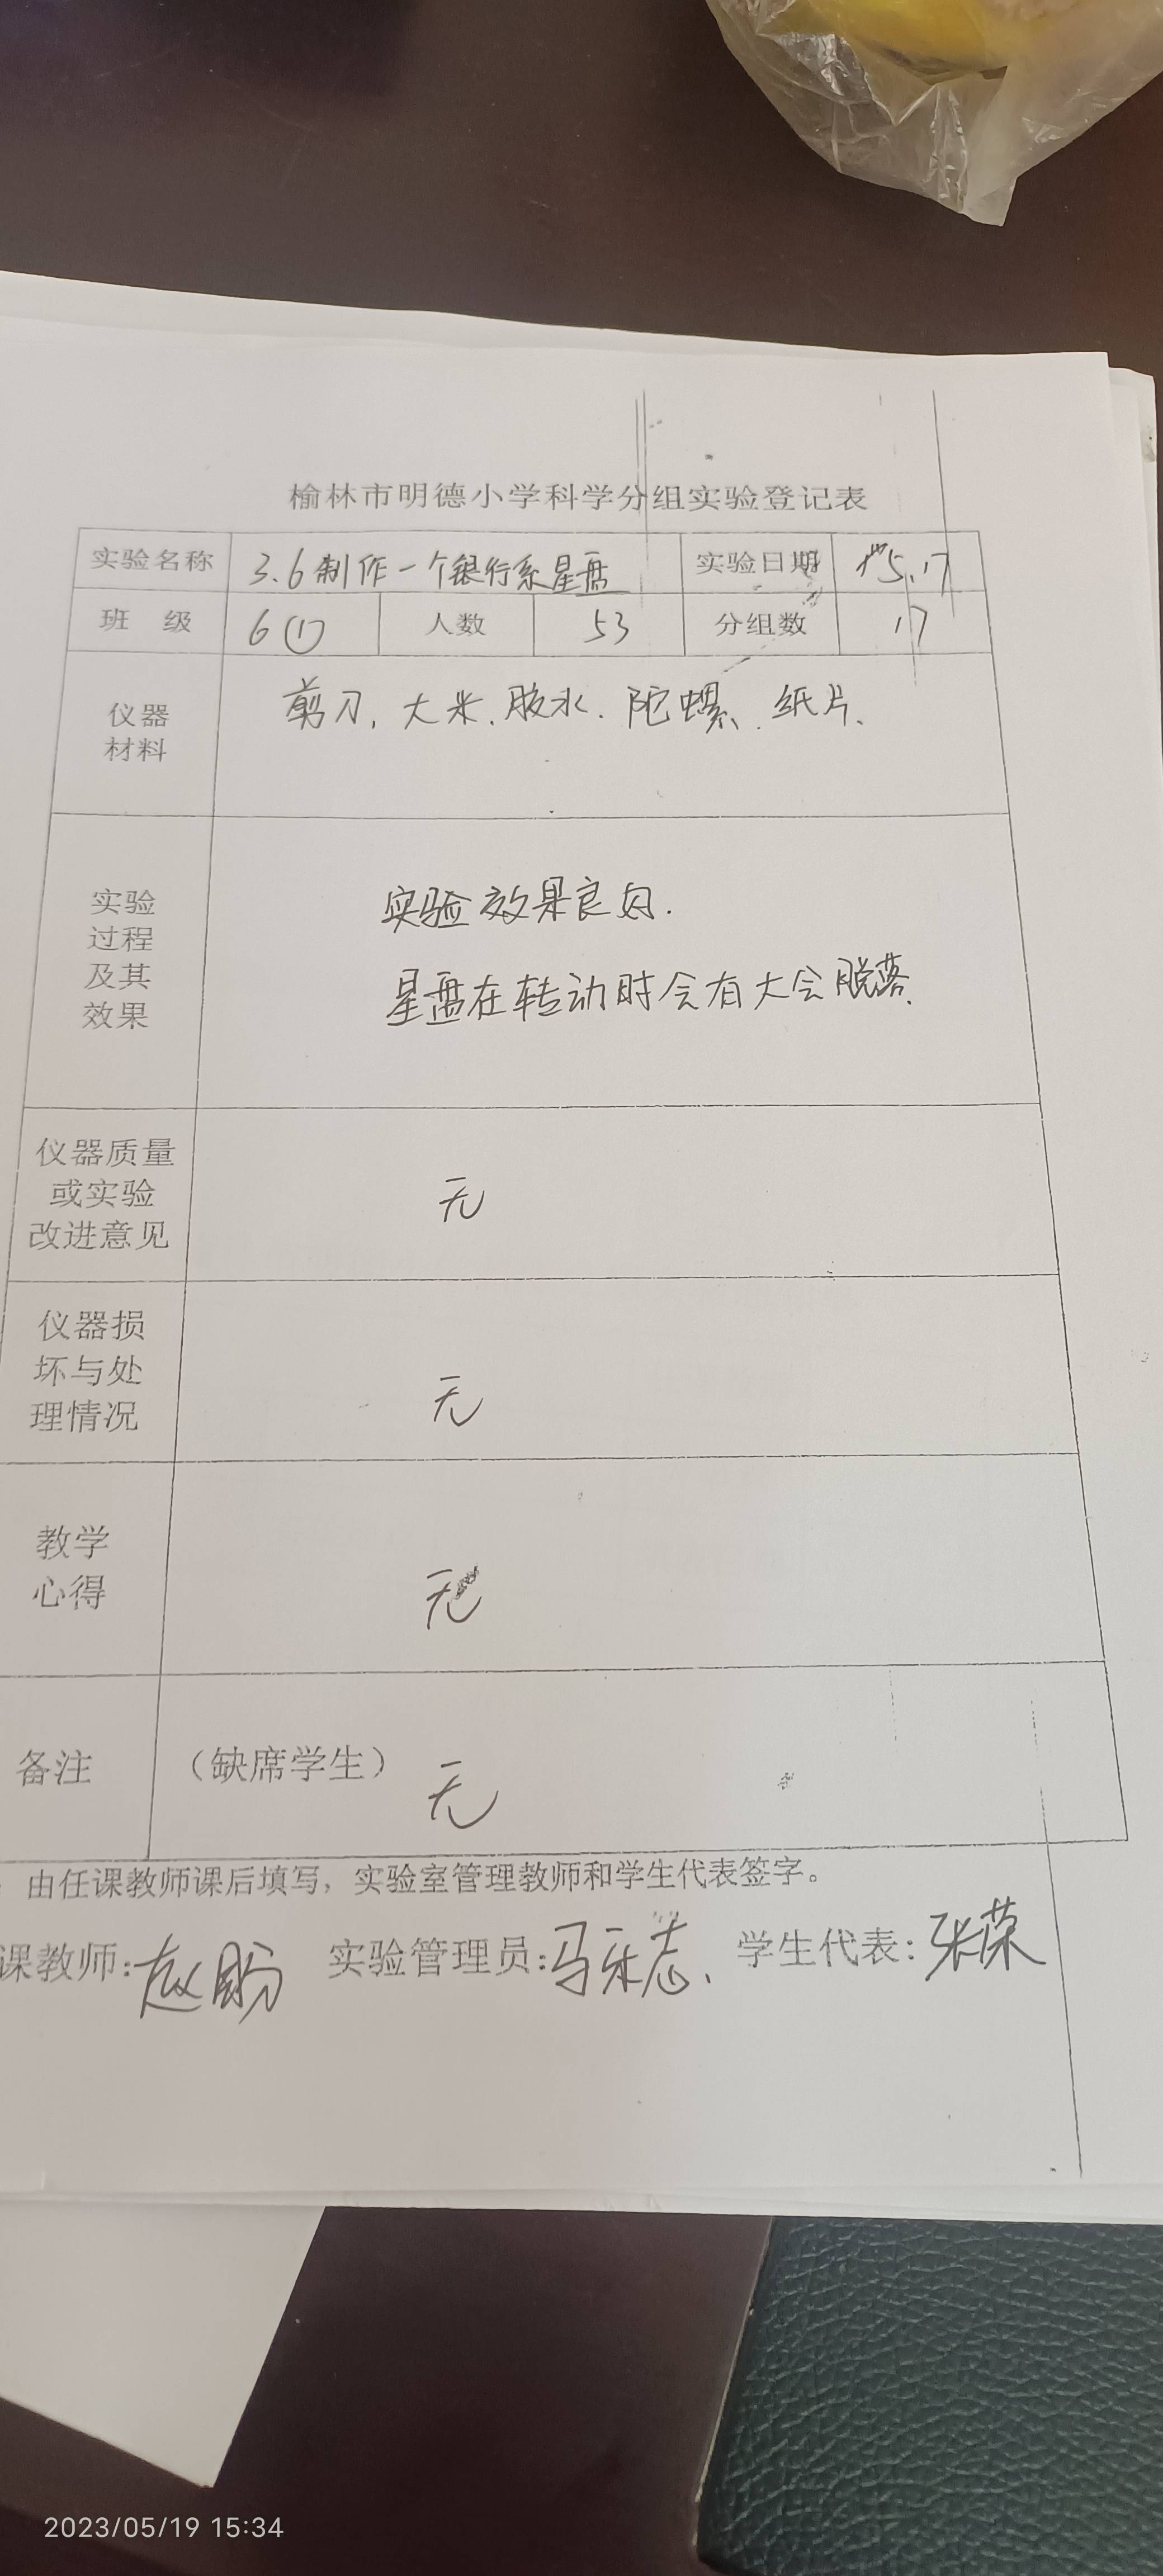 榆林市明德小学科学分组实验登记表
实验名称 3.6制作一个银行系星盘 实验日期 5.17
班 级 6(1) 人数 53 分组数 17
仪器
材料
剪刀、大米、胶水、陀螺、纸片、
实验
过程
及其
效果
实验效果良好.
星盘在转动时会有大会脱落、
仪器质量
或实验
改进意见
无
仪器损
坏与处
理情况
无
教学
心得
无
备注 (缺席学生) 无
由任课教师课后填写，实验室管理教师和学生代表签字。
课教师: 赵盼 实验管理员: 马乐志、 学生代表: 张荣
2023/05/19 15:34